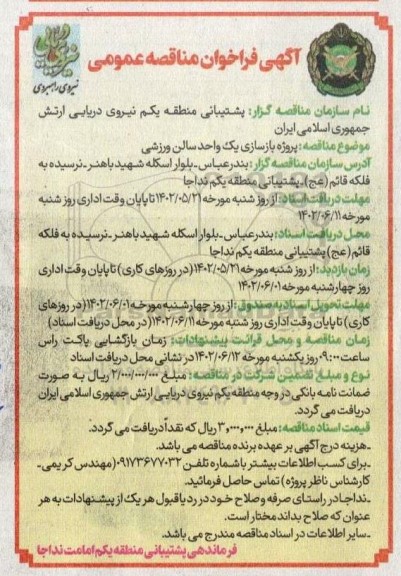 آگهی فراخوان مناقصه عمومی
نیروی راهبردی
نام سازمان مناقصه گزار: پشتیبانی منطقه یکم نیروی دریایی ارتش
جمهوری اسلامی ایران
موضوع مناقصه: پروژه بازسازی یک واحد سالن ورزشی
آدرس سازمان مناقصه گزار: بندرعباس-بلوار اسکله شهید باهنر-نرسیده به
فلکه قائم (عج)-پشتیبانی منطقه یکم نداجا
مهلت دریافت اسناد: از روز شنبه مورخه ۱۴۰۲/۰۵/۲۱ تا پایان وقت اداری روز شنبه
مورخه ۱۴۰۲/۰۶/۱۱
محل دریافت اسناد: بندرعباس-بلوار اسکله شهید باهنر-نرسیده به فلکه
قائم (عج) پشتیبانی منطقه یکم نداجا
زمان بازدید: از روز شنبه مورخه ۱۴۰۲/۰۵/۲۱ (در روزهای کاری) تا پایان وقت اداری
روز چهارشنبه مورخه ۱۴۰۲/۰۶/۰۱
مهلت تحویل اسناد به صندوق: از روز چهارشنبه مورخه ۱۴۰۲/۰۶/۰۱ (در روزهای
کاری) تا پایان وقت اداری روز شنبه مورخه ۱۴۰۲/۰۶/۱۱ (در محل دریافت اسناد)
زمان مناقصه و محل قرائت پیشنهادات: زمان بازگشایی پاکت راس
ساعت ۰۹:۰۰ روز یکشنبه مورخه ۱۴۰۲/۰۶/۱۲ در نشانی محل دریافت اسناد
نوع و مبلغ تضمین شرکت در مناقصه: مبلغ ۲/۰۰۰/۰۰۰/۰۰۰ ریال به صورت
ضمانت نامه بانکی در وجه منطقه یکم نیروی دریایی ارتش جمهوری اسلامی ایران
دریافت می گردد.
قیمت اسناد مناقصه: مبلغ ۳,۰۰۰,۰۰۰ ریال که نقداً دریافت می گردد.
-هزینه درج آگهی بر عهده برنده مناقصه می باشد.
-برای کسب اطلاعات بیشتر با شماره تلفن ۰۹۱۷۳۶۷۷۰۳۲ (مهندس کریمی-
کارشناس ناظر پروژه) تماس حاصل فرمائید.
-نداجا در راستای صرفه و صلاح خود در رد یا قبول هر یک از پیشنهادات به هر
عنوان که صلاح بداند مختار است.
-سایر اطلاعات در اسناد مناقصه مندرج می باشد.
فرماندهی پشتیبانی منطقه یکم امامت نداجا